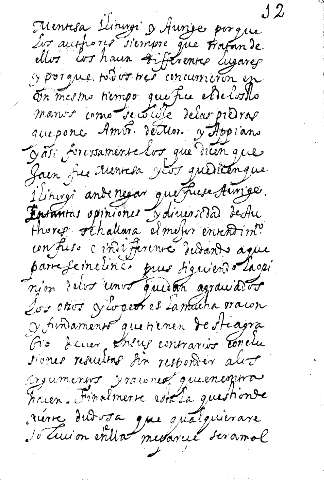 12
Mentesa Iliturgi y Aurige porque
los authores siempre que tratan de
ellos los hacen differentes lugares
y porque todos tres concurrieron en
un mesmo tiempo que fue el de los Ro
manos como se colije de las piedras
que pone Amb. de Mor. y Appiano
y asi forzosamente los que dicen que
Jaen fue Mentesa y los que dicen que
Iliturgi an de negar que fuese Aurige
En tantas opiniones y diversidad de Au
thores se hallara el mejor entendim.to
confuso e indifferente dudando a que
parte se incline pues siguiendo la opi
nion de los unos quedan agraviados
los otros y lo peor es la mucha raçon
y fundamento que tienen de
siones resueltas sin responder a los
argumentos y raçones que en contra
hacen. Finalmente esta la question de
suerte dudosa que qualquiera re
solucion en ella me parece sera mal